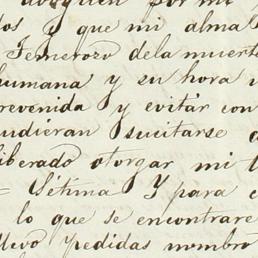 aboguen por mi
dos y que mi alma
Temerozo dela muerte
humana y su hora
prevenida y evitar con
pudieran sucitarse
liberado otorgar mi
= Sétima Y para
lo que se encontrare
llevo ypedidas nombro